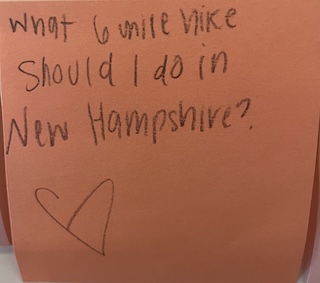 What 6 mile hike
Should I do in
New Hampshire?